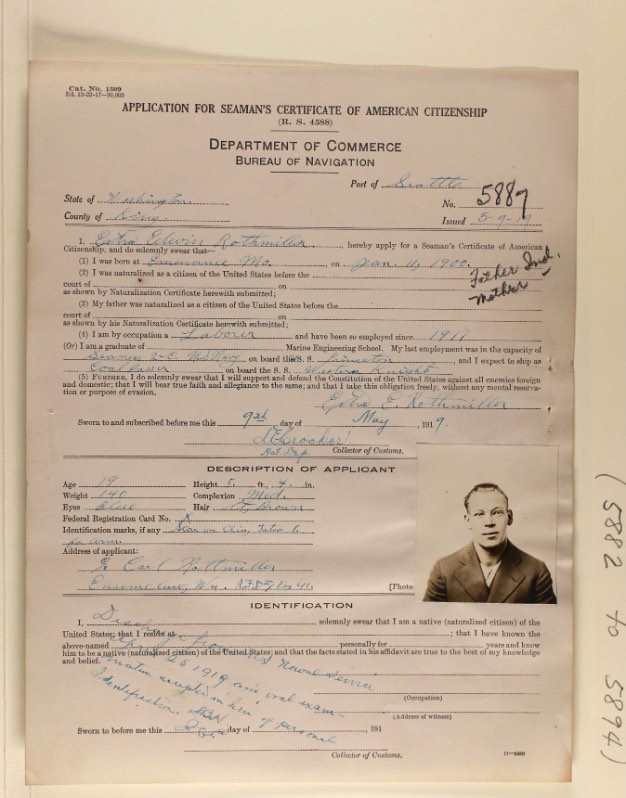 Cat. No. 1509
Ed. 12-22-17—50,000
APPLICATION FOR SEAMAN'S CERTIFICATE OF AMERICAN CITIZENSHIP
(R. S. 4588)
DEPARTMENT OF COMMERCE
BUREAU OF NAVIGATION
Port of Seattle
State of Washington
No. 5887
County of King
Issued 5-9-19
I, Edwin Rothmiller, hereby apply for a Seaman's Certificate of American
Citizenship, and do solemnly swear that—
(1) I was born at Mo. on Jan. 11, 1900.
(2) I was naturalized as a citizen of the United States before the
Father Ind.
Mother "
court of on
as shown by Naturalization Certificate herewith submitted;
(3) My father was naturalized as a citizen of the United States before the
court of on
as shown by his Naturalization Certificate herewith submitted;
(4) I am by occupation a Laborer and have been so employed since 1917
(Or) I am a graduate of Marine Engineering School. My last employment was in the capacity of
Seaman 2-C. on board the S. S. Princeton, and I expect to ship as
Coal Passer on board the S. S. Western Knight
(5) FURTHER, I do solemnly swear that I will support and defend the Constitution of the United States against all enemies foreign
and domestic; that I will bear true faith and allegiance to the same; and that I take this obligation freely, without any mental reserva-
tion or purpose of evasion.
E. Rothmiller
Sworn to and subscribed before me this 9th day of May, 1919.
Crocker
Collector of Customs.
DESCRIPTION OF APPLICANT
Age 19 Height 5 ft. 4 in.
Weight 140 Complexion Med.
Eyes blue Hair Lt. Brown
Federal Registration Card No. X
Identification marks, if any Scar on Chin, Tatoo L.
Address of applicant:
Carl Rothmiller
Enumclaw, Wn.
[Photo
IDENTIFICATION
I, solemnly swear that I am a native (naturalized) citizen of the
United States; that I reside at ; that I have known the
above-named personally for years and know
him to be a native (naturalized) citizen of the United States; and that the facts stated in his affidavit are true to the best of my knowledge
and belief.
Discharge from Naval Service
1919 and oral exam-
ination accepted in lieu of personal
Identification.
(Occupation)
(Address of witness)
Sworn to before me this day of , 191
Collector of Customs.
11—4589
(5882 to 5894)